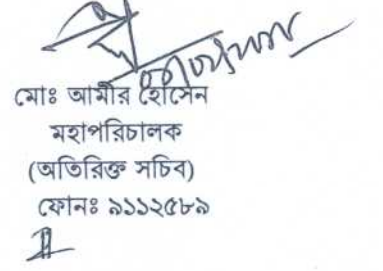 মোঃ আমীর হোসেন
মহাপরিচালক
(অতিরিক্ত সচিব)
ফোনঃ ৯১১২৫৮৯